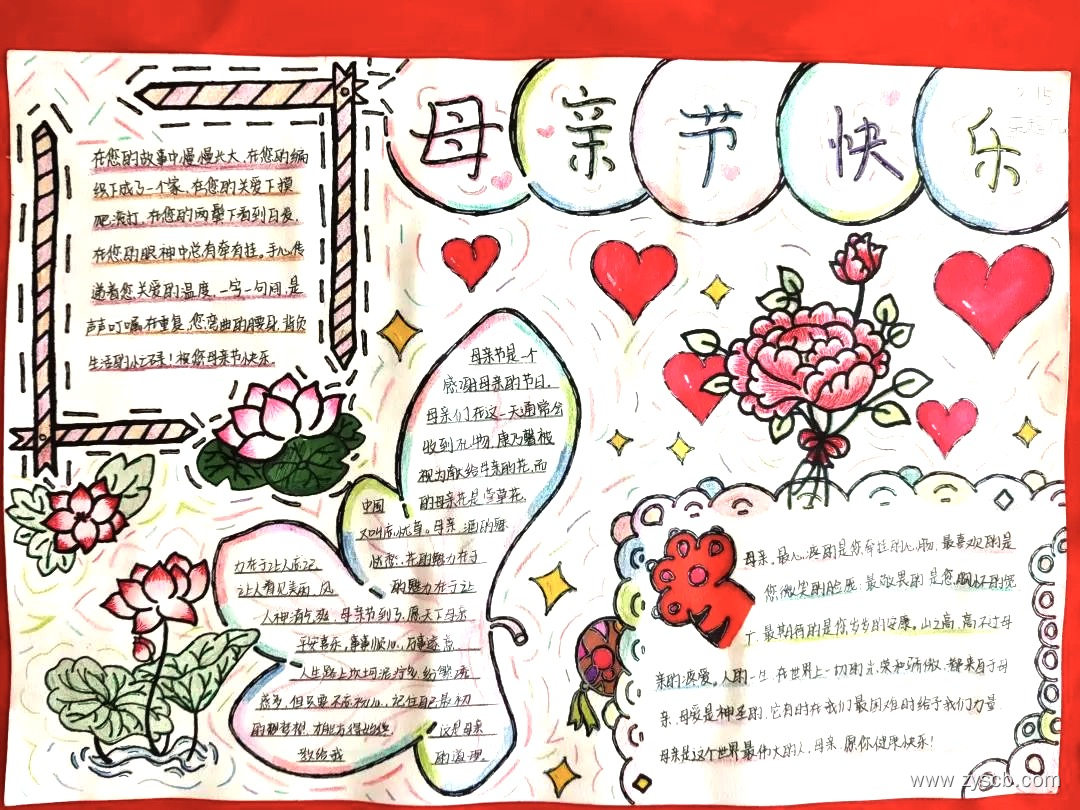 母亲节快乐
15
在您的故事中慢慢长大,在您的编
织下成了一个家,在您的关爱下摸
爬滚打,在您的两鬓下看到白发,
在您的眼神中总有牵有挂。手心传
递着您关爱的温度,一字一句间,是
声声叮嘱在重复,您弯曲的腰身,背负
生活的!祝您母亲节快乐。
母亲节是一个
感谢母亲的节日,
母亲们在这一天通常会
收到礼物,康乃馨被
视为献给母亲的花,而
中国的母亲花是萱草花,
又叫忘忧草。母亲,酒的魅
力在于让人忘记忧愁,花的魅力在于
让人看见美丽,风的魅力在于让
人神清气爽,母亲节到了,愿天下母亲
平安喜乐,事事顺心,万事
人生路上坎坷泥泞多,纷繁诱
惑多,但只要不忘初心,记住自己最初
的梦想,才能方得始终,这是母亲
教给我的道理。
母亲,最心疼的是您牵挂的心肠,最喜欢的是
您微笑的脸庞;最敬畏的是您胸怀的宽
广,最期待的是您岁岁的安康。山之高,高不过母
亲的疼爱。人的一生,在世界上一切的光荣和骄傲,都来自于母
亲,母爱是神圣的,它有时在我们最困难时给予我们力量
母亲是这个世界最伟大的人,母亲,愿你健康快乐!
www.zyscb.com